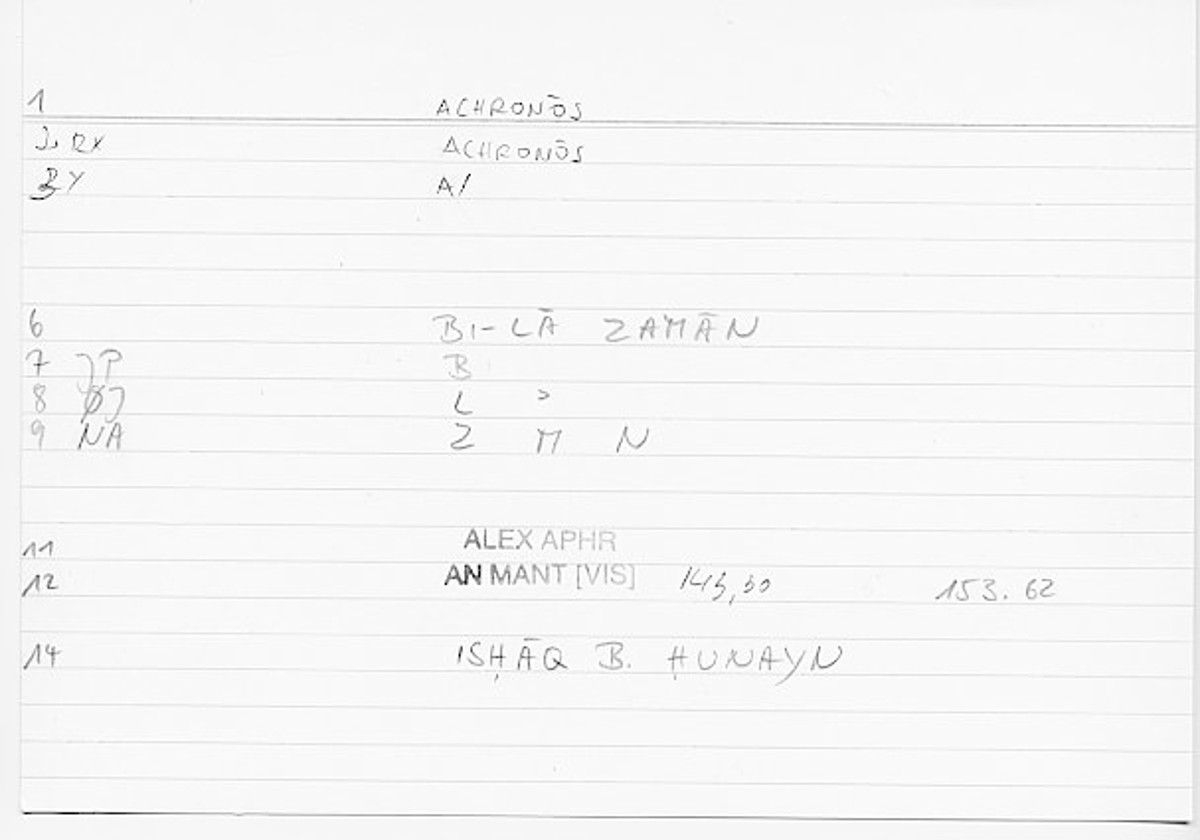 1 ACHRONŌS
2 RX ACHRONŌS
3 Y A/
6 BI-LĀ ZAMĀN
7 JP B
8 ØJ L ʾ
9 NA Z M N
11 ALEX APHR
12 AN MANT [VIS] 143,30 153.62
14 ISḤĀQ B. ḤUNAYN